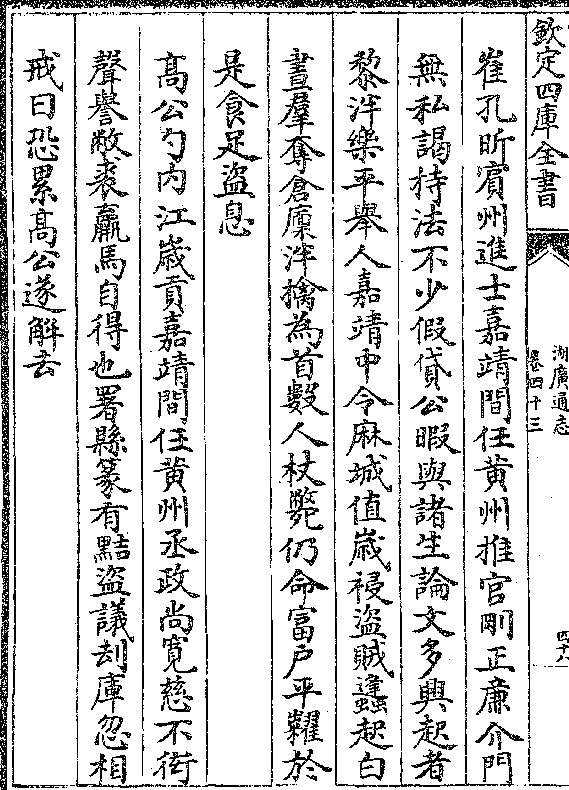 欽定四庫全書
湖廣通志
卷四十三
四十八
崔孔昕濵州進士嘉靖間任黄州推官剛正廉介門
無私謁持法不少假貸公暇與諸生論文多興起者
黎泮樂平舉人嘉靖中令麻城值歲祲盜賊蠭起白
晝羣奪倉廩泮擒為首數人杖斃仍命富户平糶於
是食足盜息
髙公勺内江歲貢嘉靖間任黄州丞政尚寛慈不衒
聲譽敝裘羸馬自得也署縣篆有黠盜議刦庫忽相
戒曰恐累髙公遂解去